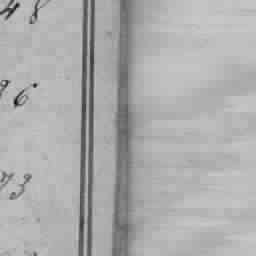 48
96
73